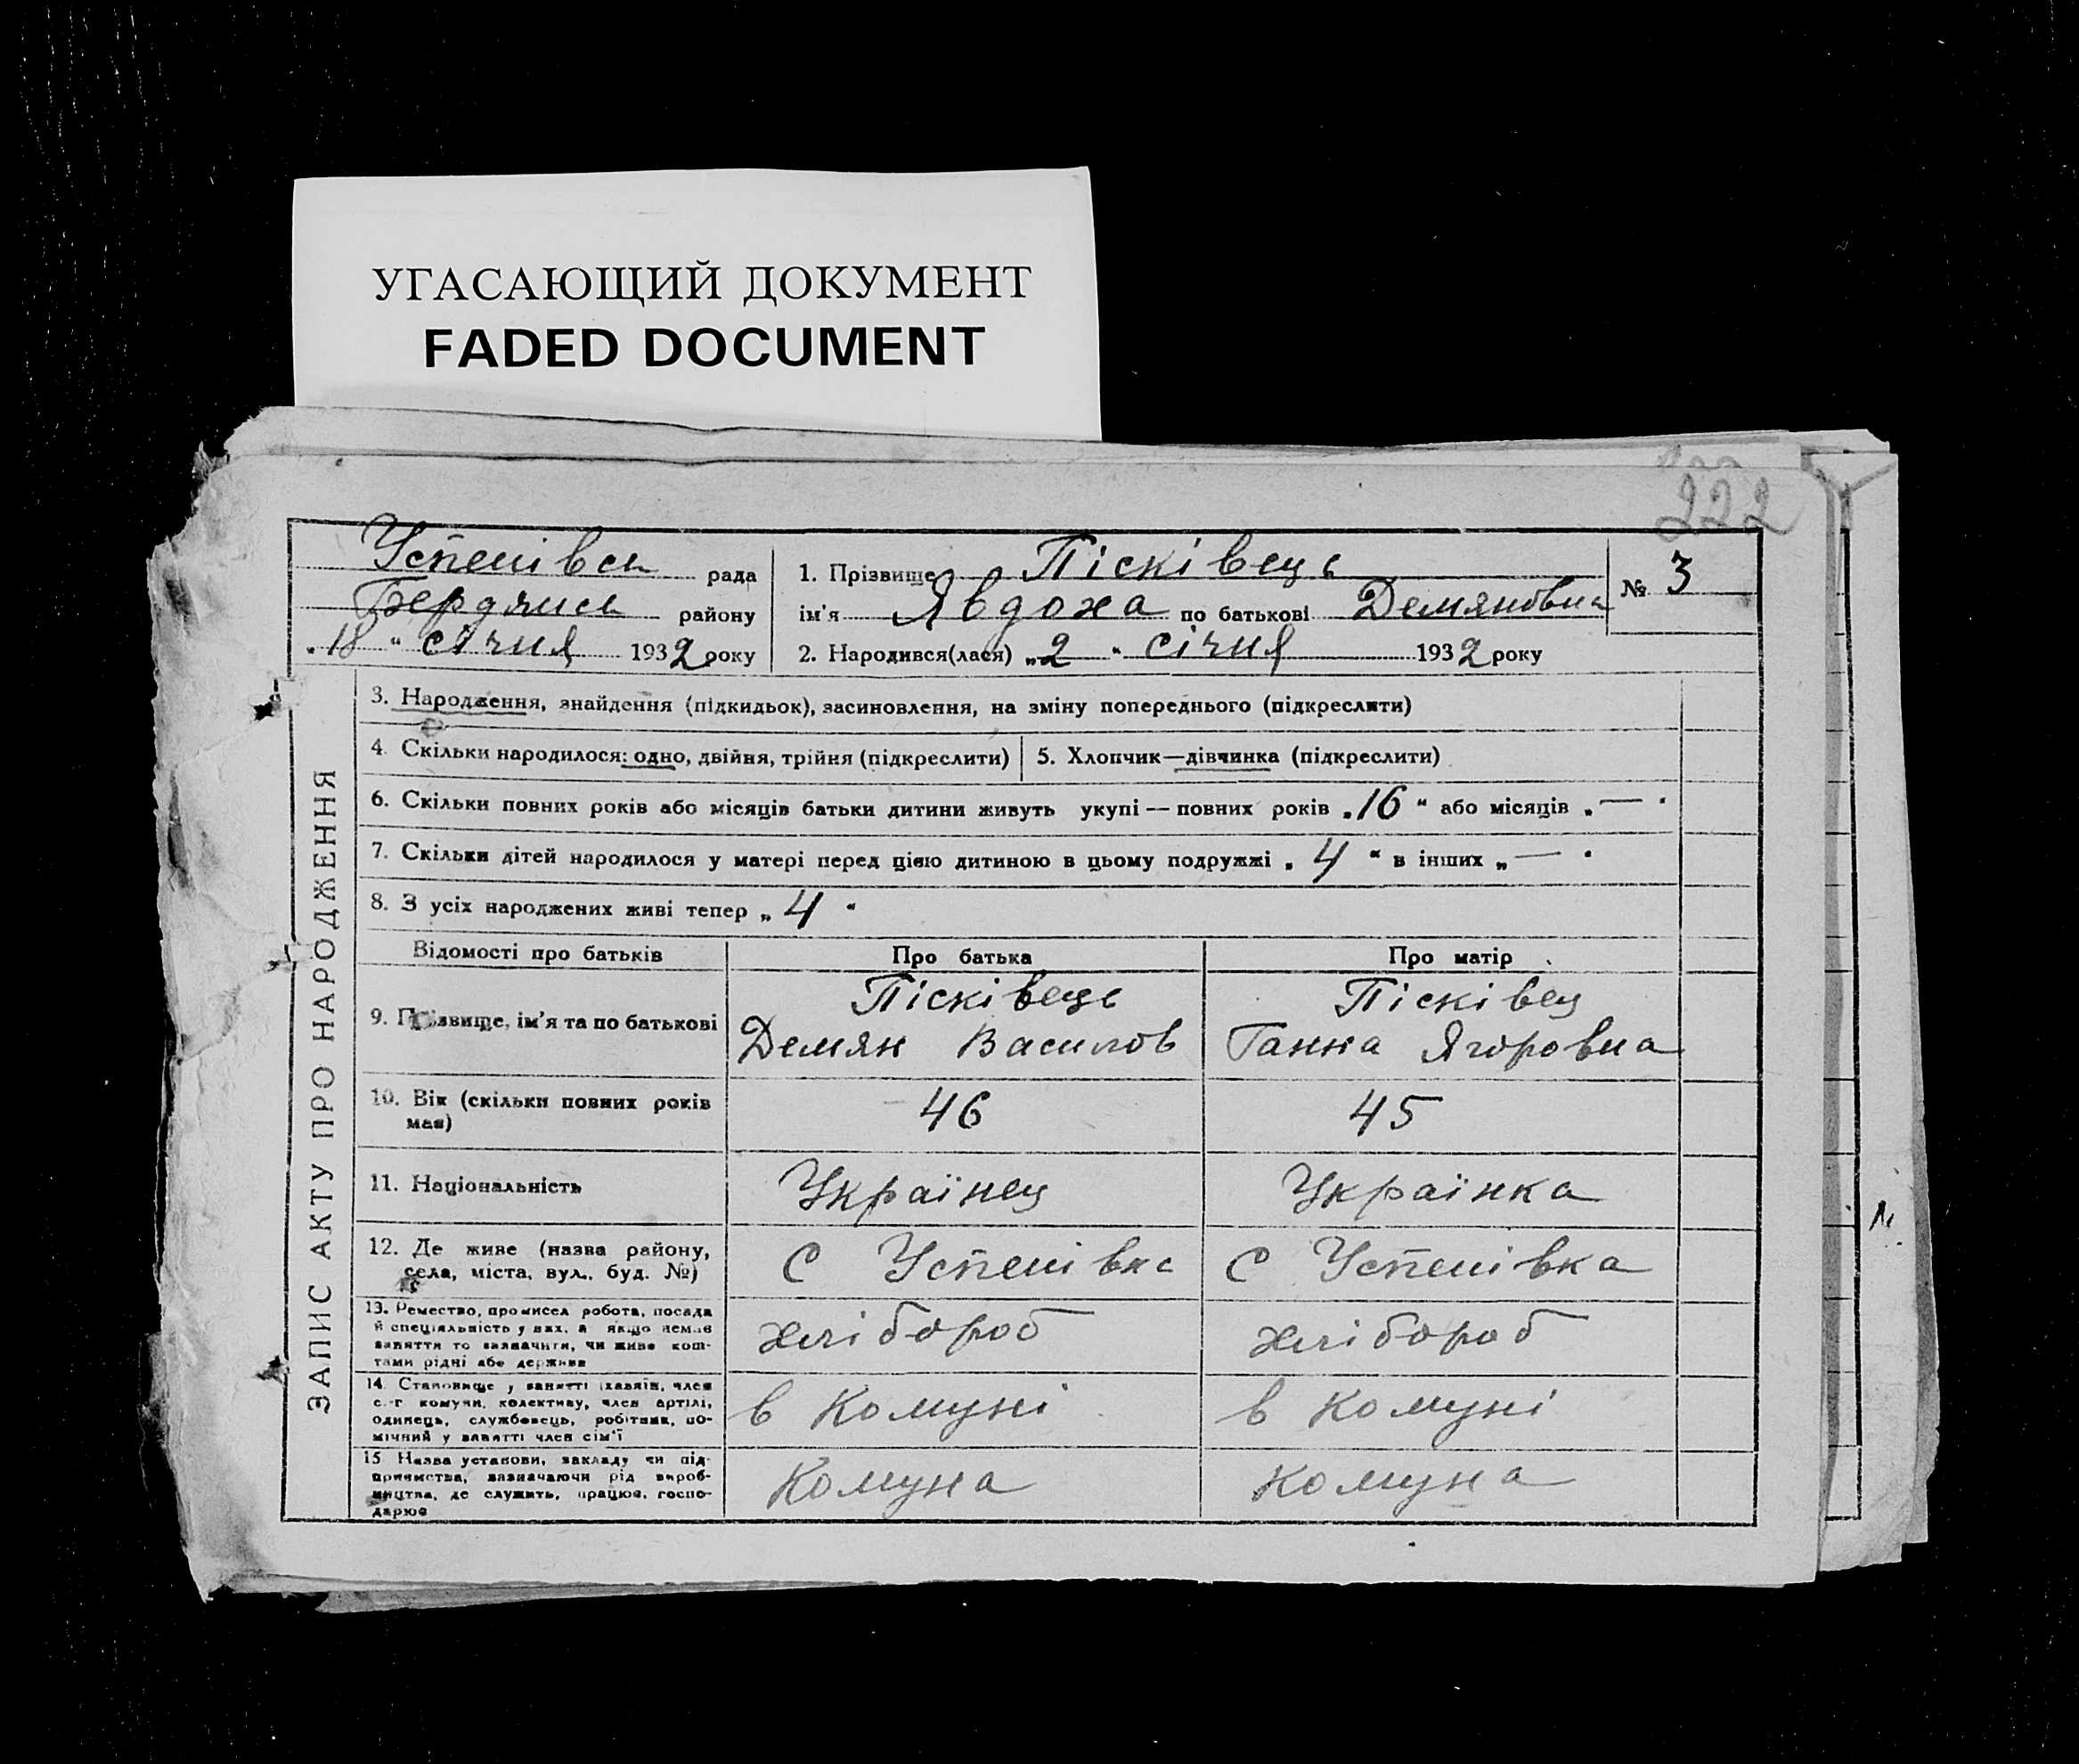 УГАСАЮЩИЙ ДОКУМЕНТ
FADED DOCUMENT
222
Успенівськ рада
Бердянськ району
„18“ січня 1932 року
1. Прізвище Пісківець
ім'я Явдоха по батькові Демяновна
№ 3
2. Народився(лася) „2“ січня 1932 року
ЗАПИС АКТУ ПРО НАРОДЖЕННЯ
3. Народження, знайдення (підкидьок), засиновлення, на зміну попереднього (підкреслити)
4. Скільки народилося: одно, двійня, трійня (підкреслити)
5. Хлопчик—дівчинка (підкреслити)
6. Скільки повних років або місяців батьки дитини живуть укупі — повних років „16“ або місяців „—“
7. Скільки дітей народилося у матері перед цією дитиною в цьому подружжі „4“ в інших „—“
8. З усіх народжених живі тепер „4“
Відомості про батьків Про батька Про матір
9. Прізвище, ім'я та по батькові
Пісківець
Демян Василов
Пісківец
Ганна Ягоровна
10. Вік (скільки повних років
має)
46 45
11. Національність Українец Українка
12. Де живе (назва району,
села, міста, вул., буд. №)
С Успенівка С Успенівка
13. Ремество, промисел робота, посада
й спеціяльність у них, а якщо немає
заняття то зазначити, чи живе кош-
тами рідні або держави
хлібороб хлібороб
14. Становище у занятті (хазяїн, член
с.-г. комуни, колективу, член артілі,
одинець, службовець, робітник, по-
мічний у занятті член сім'ї
в Комуні в Комуні
15 Назва установи, закладу чи під-
приємства, зазначаючи рід вироб-
ництва, де служить, працює, госпо-
дарює
Комуна Комуна